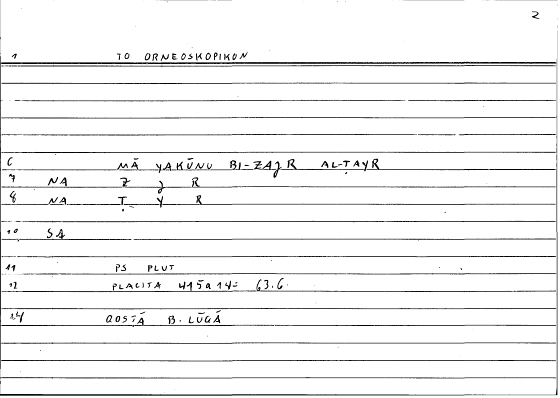 2
1 TO ORNEOSKOPIKON
6 MĀ YAKŪNU BI-ZAJR AL-ṬAYR
7 NA Z J R
8 NA Ṭ Y R
10 SA
11 PS PLUT
12 PLACITA 415a14= 63.6
14 QOSṬĀ B. LŪQĀ